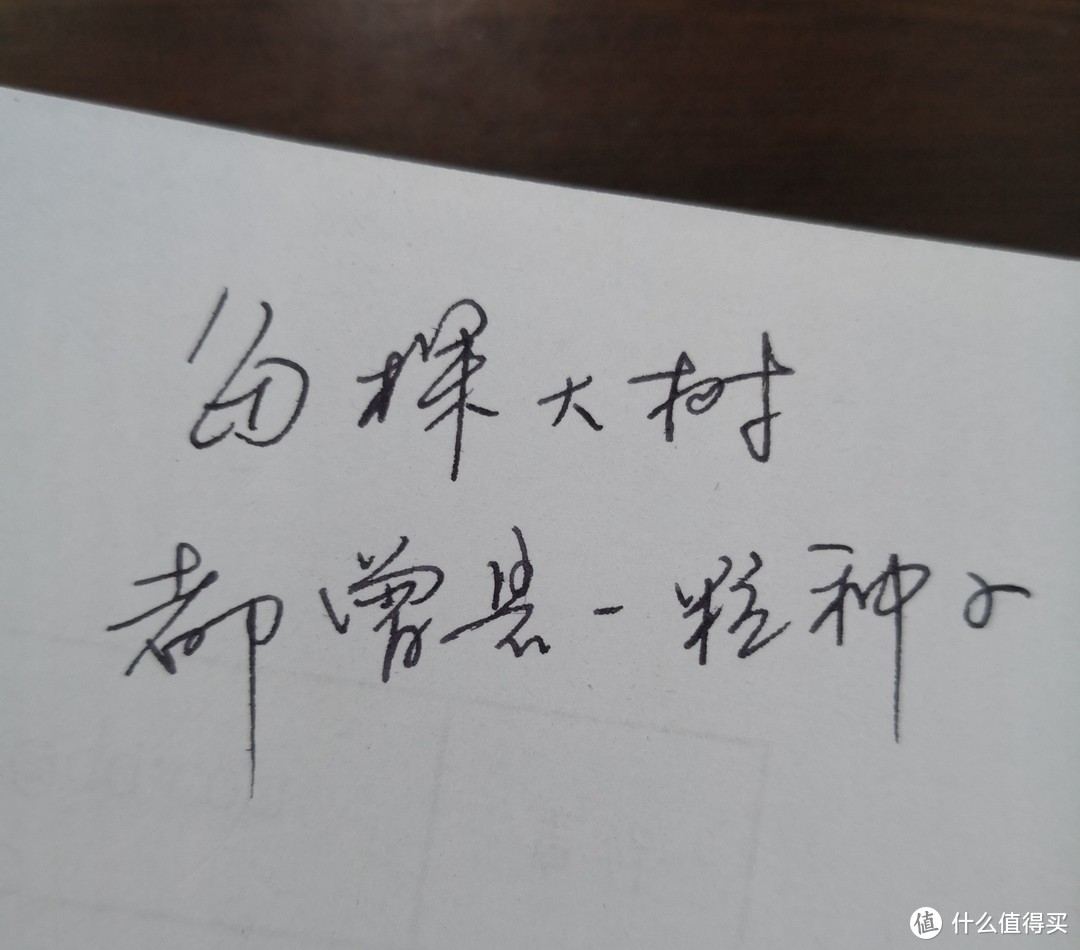 每棵大树
都曾是一粒种子
值 什么值得买